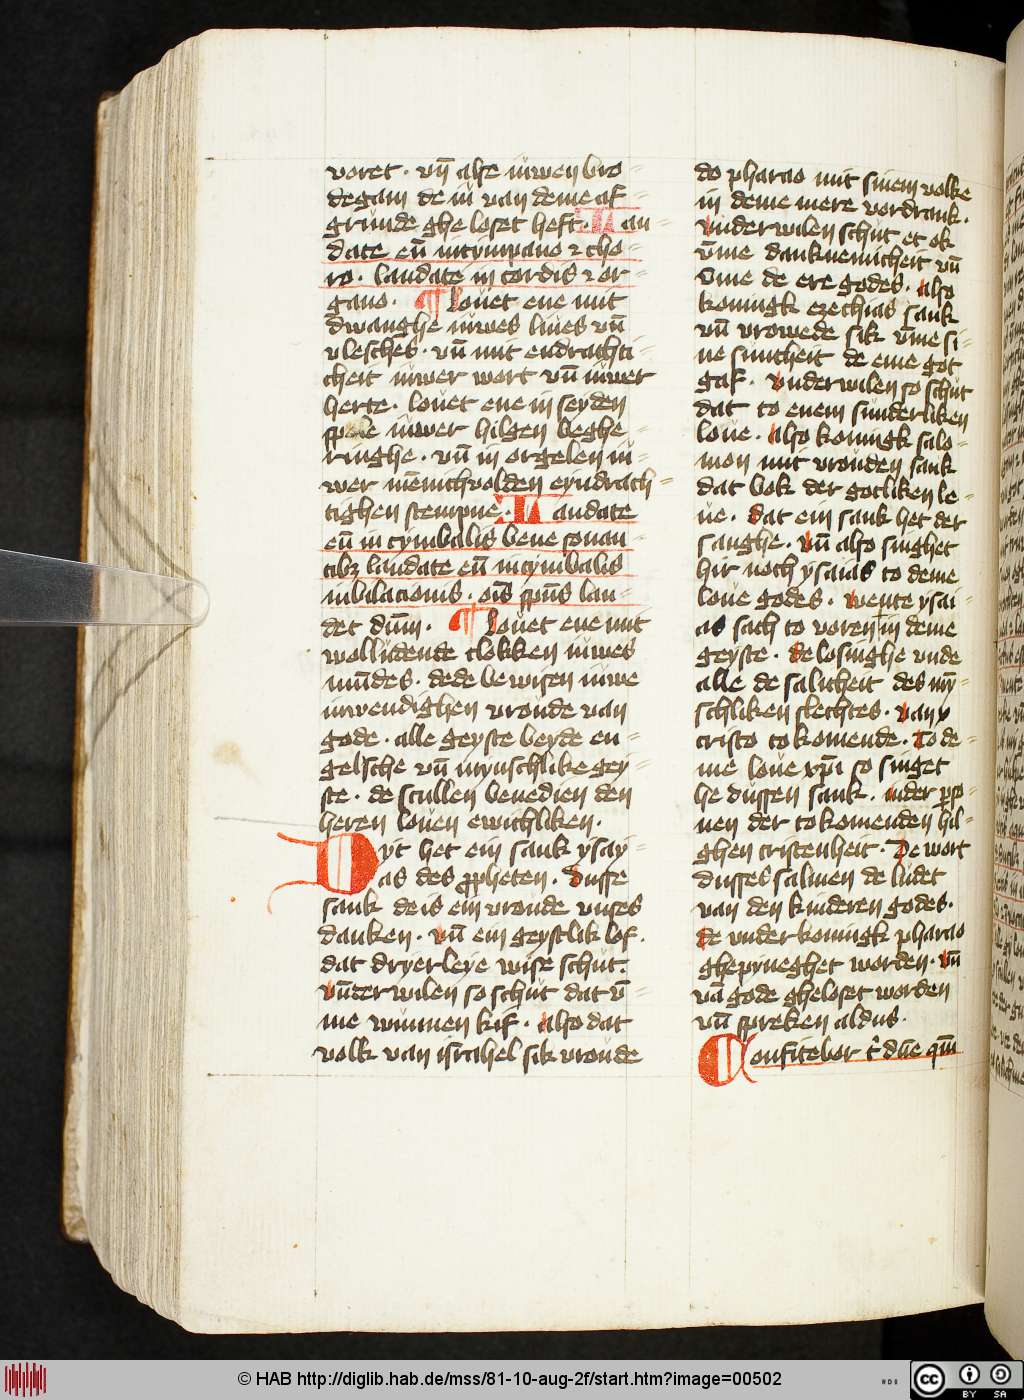 voret · vn̄ alse iuwen bro=
degam de iu van deme af=
grunde ghe loset heft · Lau=
date eū in tympano ⁊ cho=
ro · laudate in cordis ⁊ or=
gano · ¶ Louet ene mit
dwanghe iuwes liues vn̄
vlesches · vn̄ mit endrachti=
cheit iuwer wort vn̄ iuwer
herte · louet ene in seyden
spele iuwer hilgen beghe=
ringhe · vn̄ in orgelen iu=
wer mēnichvolden eyndrach=
tighen stempne · Laudate
eū in cymbalis bene sonan=
tibꝫ laudate eū in cymbalis
iubilacionis · oīs sp̄us lau=
det dūm · ¶ Louet ene mit
wolludende clokken iuwes
mundes · dede bewisen iuwe
inwendighen vroude van
gode · alle geyste beyde en=
gelsche vn̄ mynschlike gey=
ste · de scullen benedien den
heren louen ewichliken ·
Dyt het ein sank ysay=
as des ꝓpheten · Dusse
sank de is ein vroude vnses
danken · vn̄ ein geystlik lof ·
dat dryerleye wise schut ·
vnderwilen so schut dat v̄=
me winnen kif · also dat
volk van israhel sik vroude
do pharao mit sinem volke
in deme mere vordrank ·
vnderwilen schut et ok
v̄me danknemicheit vn̄
v̄me de ere godes · also
koningk ezechias sank
vn̄ vrowede sik v̄me si=
ne suntheit de eme got
gaf · vnderwilen so schut
dat to enem sunderliken
loue · also koningk salo=
mon mit vrouden sank
dat bok der gotliken le=
ue · dat ein sank het der
sanghe · vn̄ also singhet
hir noch ysaias to deme
loue godes · wente ysai=
as sach to voren in deme
geyste · de losinghe vnde
alle de salicheit des mȳ=
schliken slechtes · van x̄
cristo tokomende · To de=
me loue xp̄i so singet
he dussen sank · in der ꝑso=
nen der tokomenden hil=
ghen cristenheit · De wort
dusses salmen de ludet
van den kinderen godes ·
de vnder koningk pharao
ghepyneghet worden · vn̄
vā gode gheloset worden
vn̄ spreken aldus ·
Confitebor t̄ dn̄e qm̄
© HAB http://diglib.hab.de/mss/81-10-aug-2f/start.htm?image=00502
cc BY SA